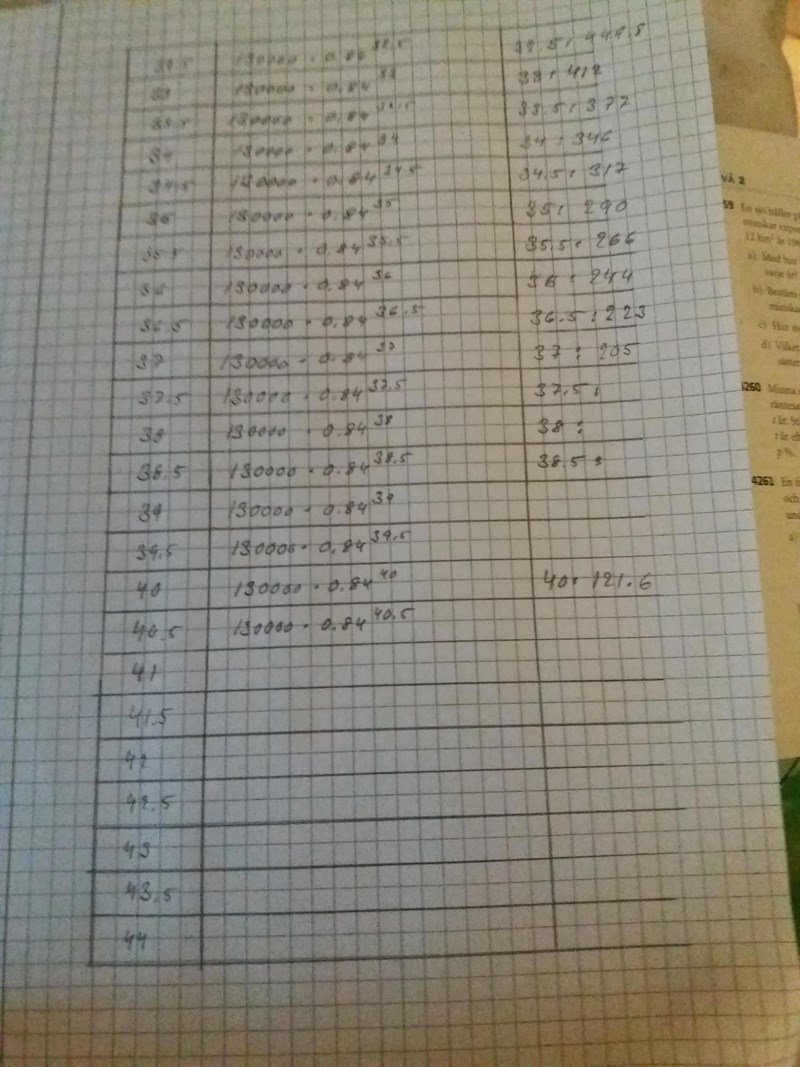 32.5 130000 · 0.84^32.5 32.5: 449.5
33 130000 · 0.84^33 33: 412
33.5 130000 · 0.84^33.5 33.5: 377
34 130000 · 0.84^34 34: 346
34.5 130000 · 0.84^34.5 34.5: 317
35 130000 · 0.84^35 35: 290
35.5 130000 · 0.84^35.5 35.5: 266
36 130000 · 0.84^36 36: 244
36.5 130000 · 0.84^36.5 36.5: 223
37 130000 · 0.84^37 37: 205
37.5 130000 · 0.84^37.5 37.5:
38 130000 · 0.84^38 38:
38.5 130000 · 0.84^38.5 38.5:
39 130000 · 0.84^39
39.5 130000 · 0.84^39.5
40 130000 · 0.84^40 40: 121.6
40.5 130000 · 0.84^40.5
41
41.5
42
42.5
43
43.5
44
VÅ 2
59 En sjö håller
12 km²
a) Med hur
varje år?
b)
c) Hur
d)
4260
p %.
4261 En
och
a)